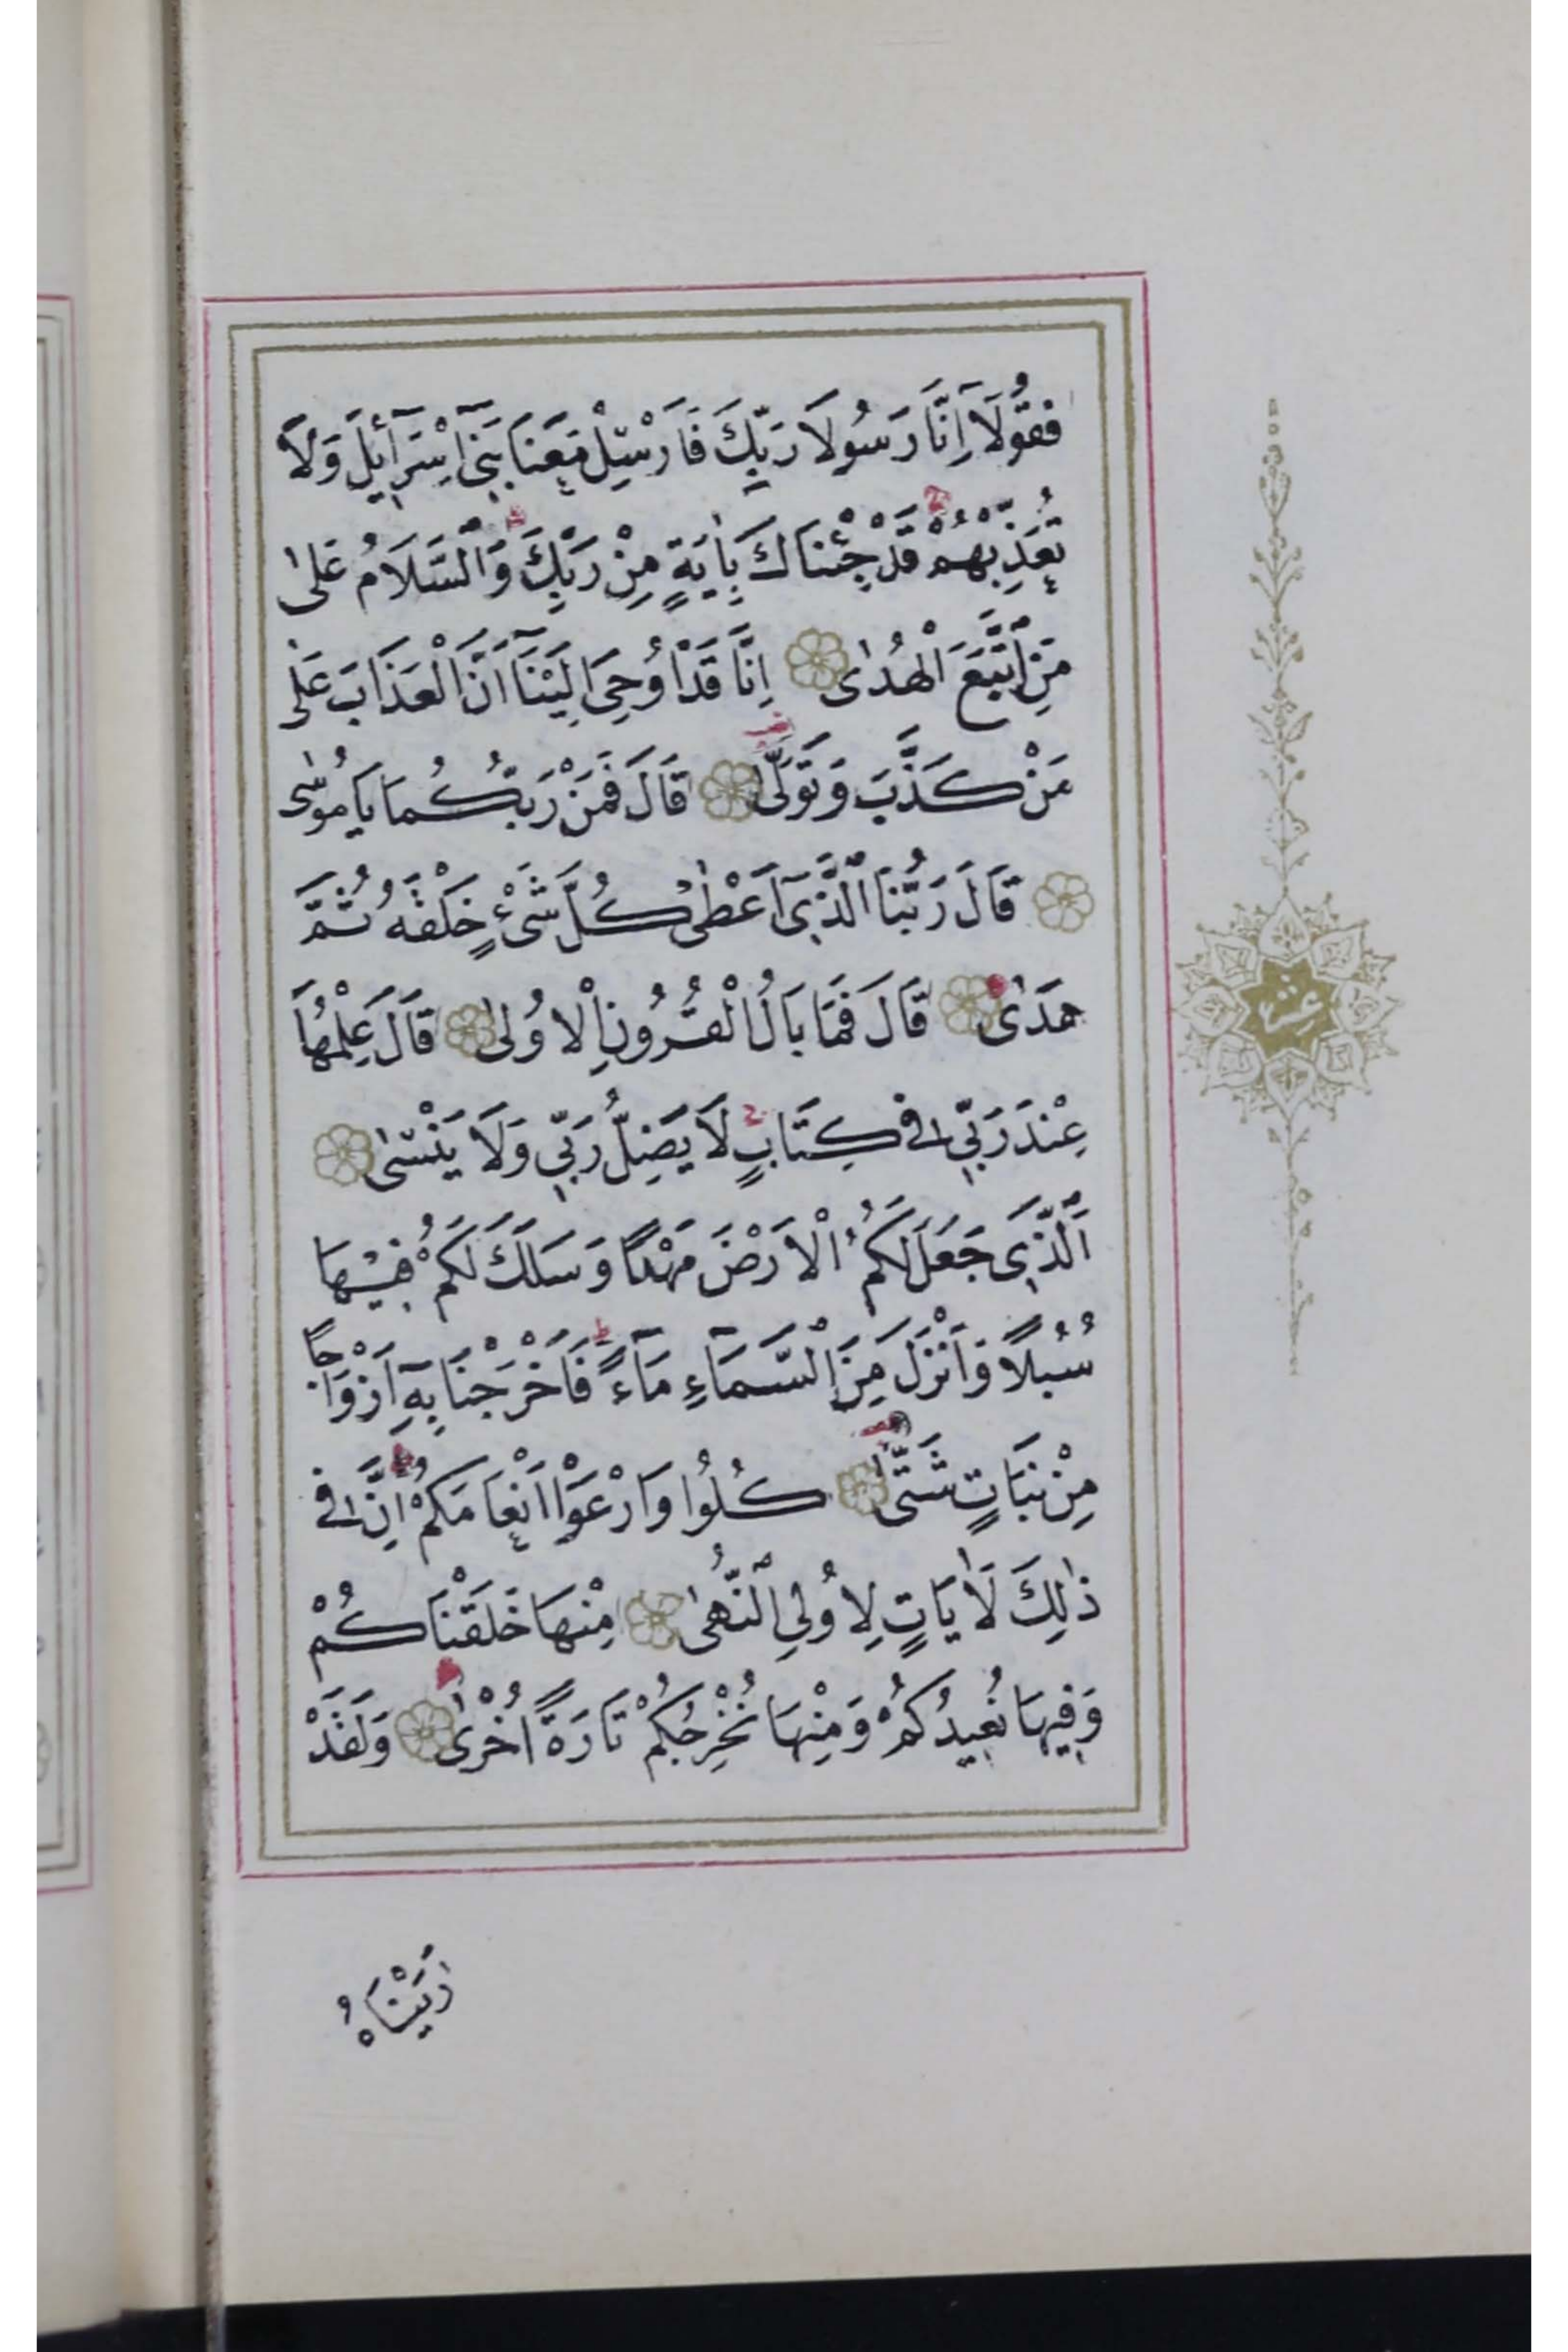 فَقُولَآ اِنَّا رَسُولَا رَبِّكَ فَاَرْسِلْ مَعَنَا بَنِىٓ اِسْرَٓائٖلَ وَلَا
تُعَذِّبْهُمْ قَدْ جِئْنَاكَ بِاٰيَةٍ مِنْ رَبِّكَ وَالسَّلَامُ عَلٰى
مَنِ اتَّبَعَ الْهُدٰى اِنَّا قَدْ اُوحِىَ اِلَيْنَٓا اَنَّ الْعَذَابَ عَلٰى
مَنْ كَذَّبَ وَتَوَلّٰى قَالَ فَمَنْ رَبُّكُمَا يَا مُوسٰى
قَالَ رَبُّنَا الَّذٖىٓ اَعْطٰى كُلَّ شَىْءٍ خَلْقَهُ ثُمَّ
هَدٰى قَالَ فَمَا بَالُ الْقُرُونِ الْاُولٰى قَالَ عِلْمُهَا
عِنْدَ رَبّٖى فٖى كِتَابٍ لَا يَضِلُّ رَبّٖى وَلَا يَنْسٰى
اَلَّذٖى جَعَلَ لَكُمُ الْاَرْضَ مَهْدًا وَسَلَكَ لَكُمْ فٖيهَا
سُبُلًا وَاَنْزَلَ مِنَ السَّمَٓاءِ مَٓاءً فَاَخْرَجْنَا بِهٖٓ اَزْوَاجًا
مِنْ نَبَاتٍ شَتّٰى كُلُوا وَارْعَوْا اَنْعَامَكُمْ اِنَّ فٖى
ذٰلِكَ لَاٰيَاتٍ لِاُولِى النُّهٰى مِنْهَا خَلَقْنَاكُمْ
وَفٖيهَا نُعٖيدُكُمْ وَمِنْهَا نُخْرِجُكُمْ تَارَةً اُخْرٰى وَلَقَدْ
اَرَيْنَاهُ
عشر